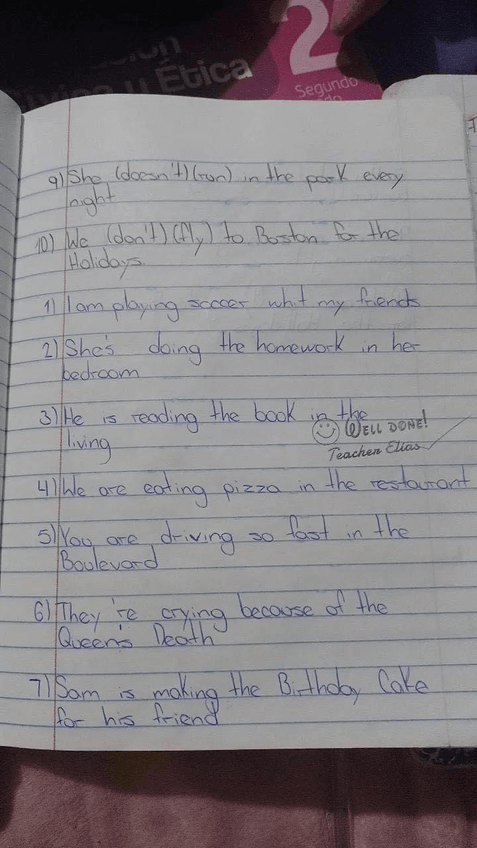 Cívica y Ética
2
Segundo
9) She (doesn't) (run) in the park every
night
10) We (don't) (fly) to Boston for the
Holidays
1) I am playing soccer whit my friends
2) She's doing the homework in her
bedroom
3) He is reading the book in the
living
WELL DONE!
Teacher Elias
4) We are eating pizza in the restaurant
5) You are driving so fast in the
Boulevard
6) They're crying because of the
Queen's Death
7) Sam is making the Birthday Cake
for his friend